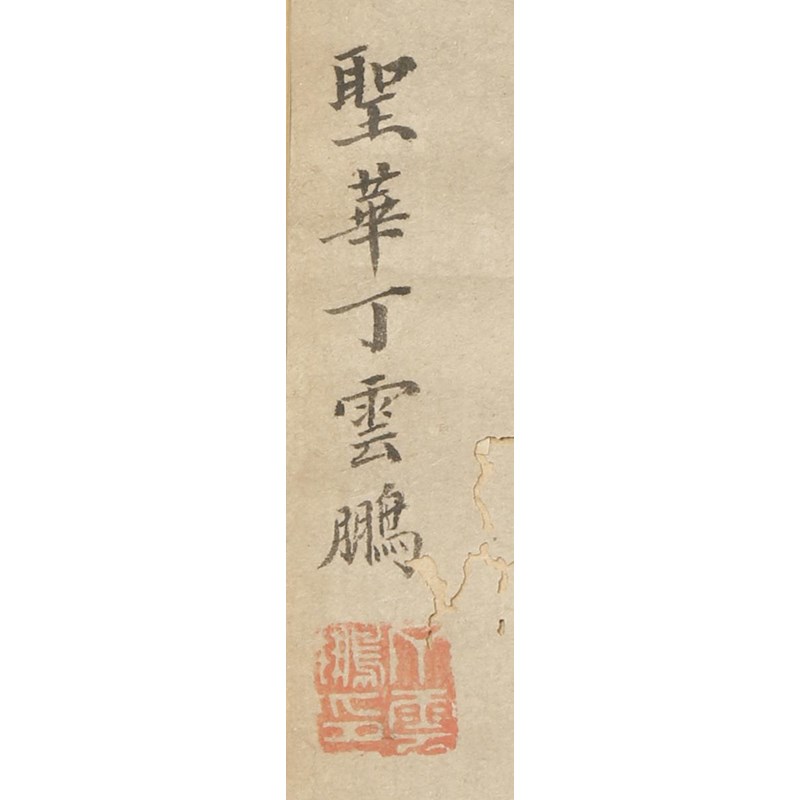 聖華丁雲鵬
丁雲
鵬印